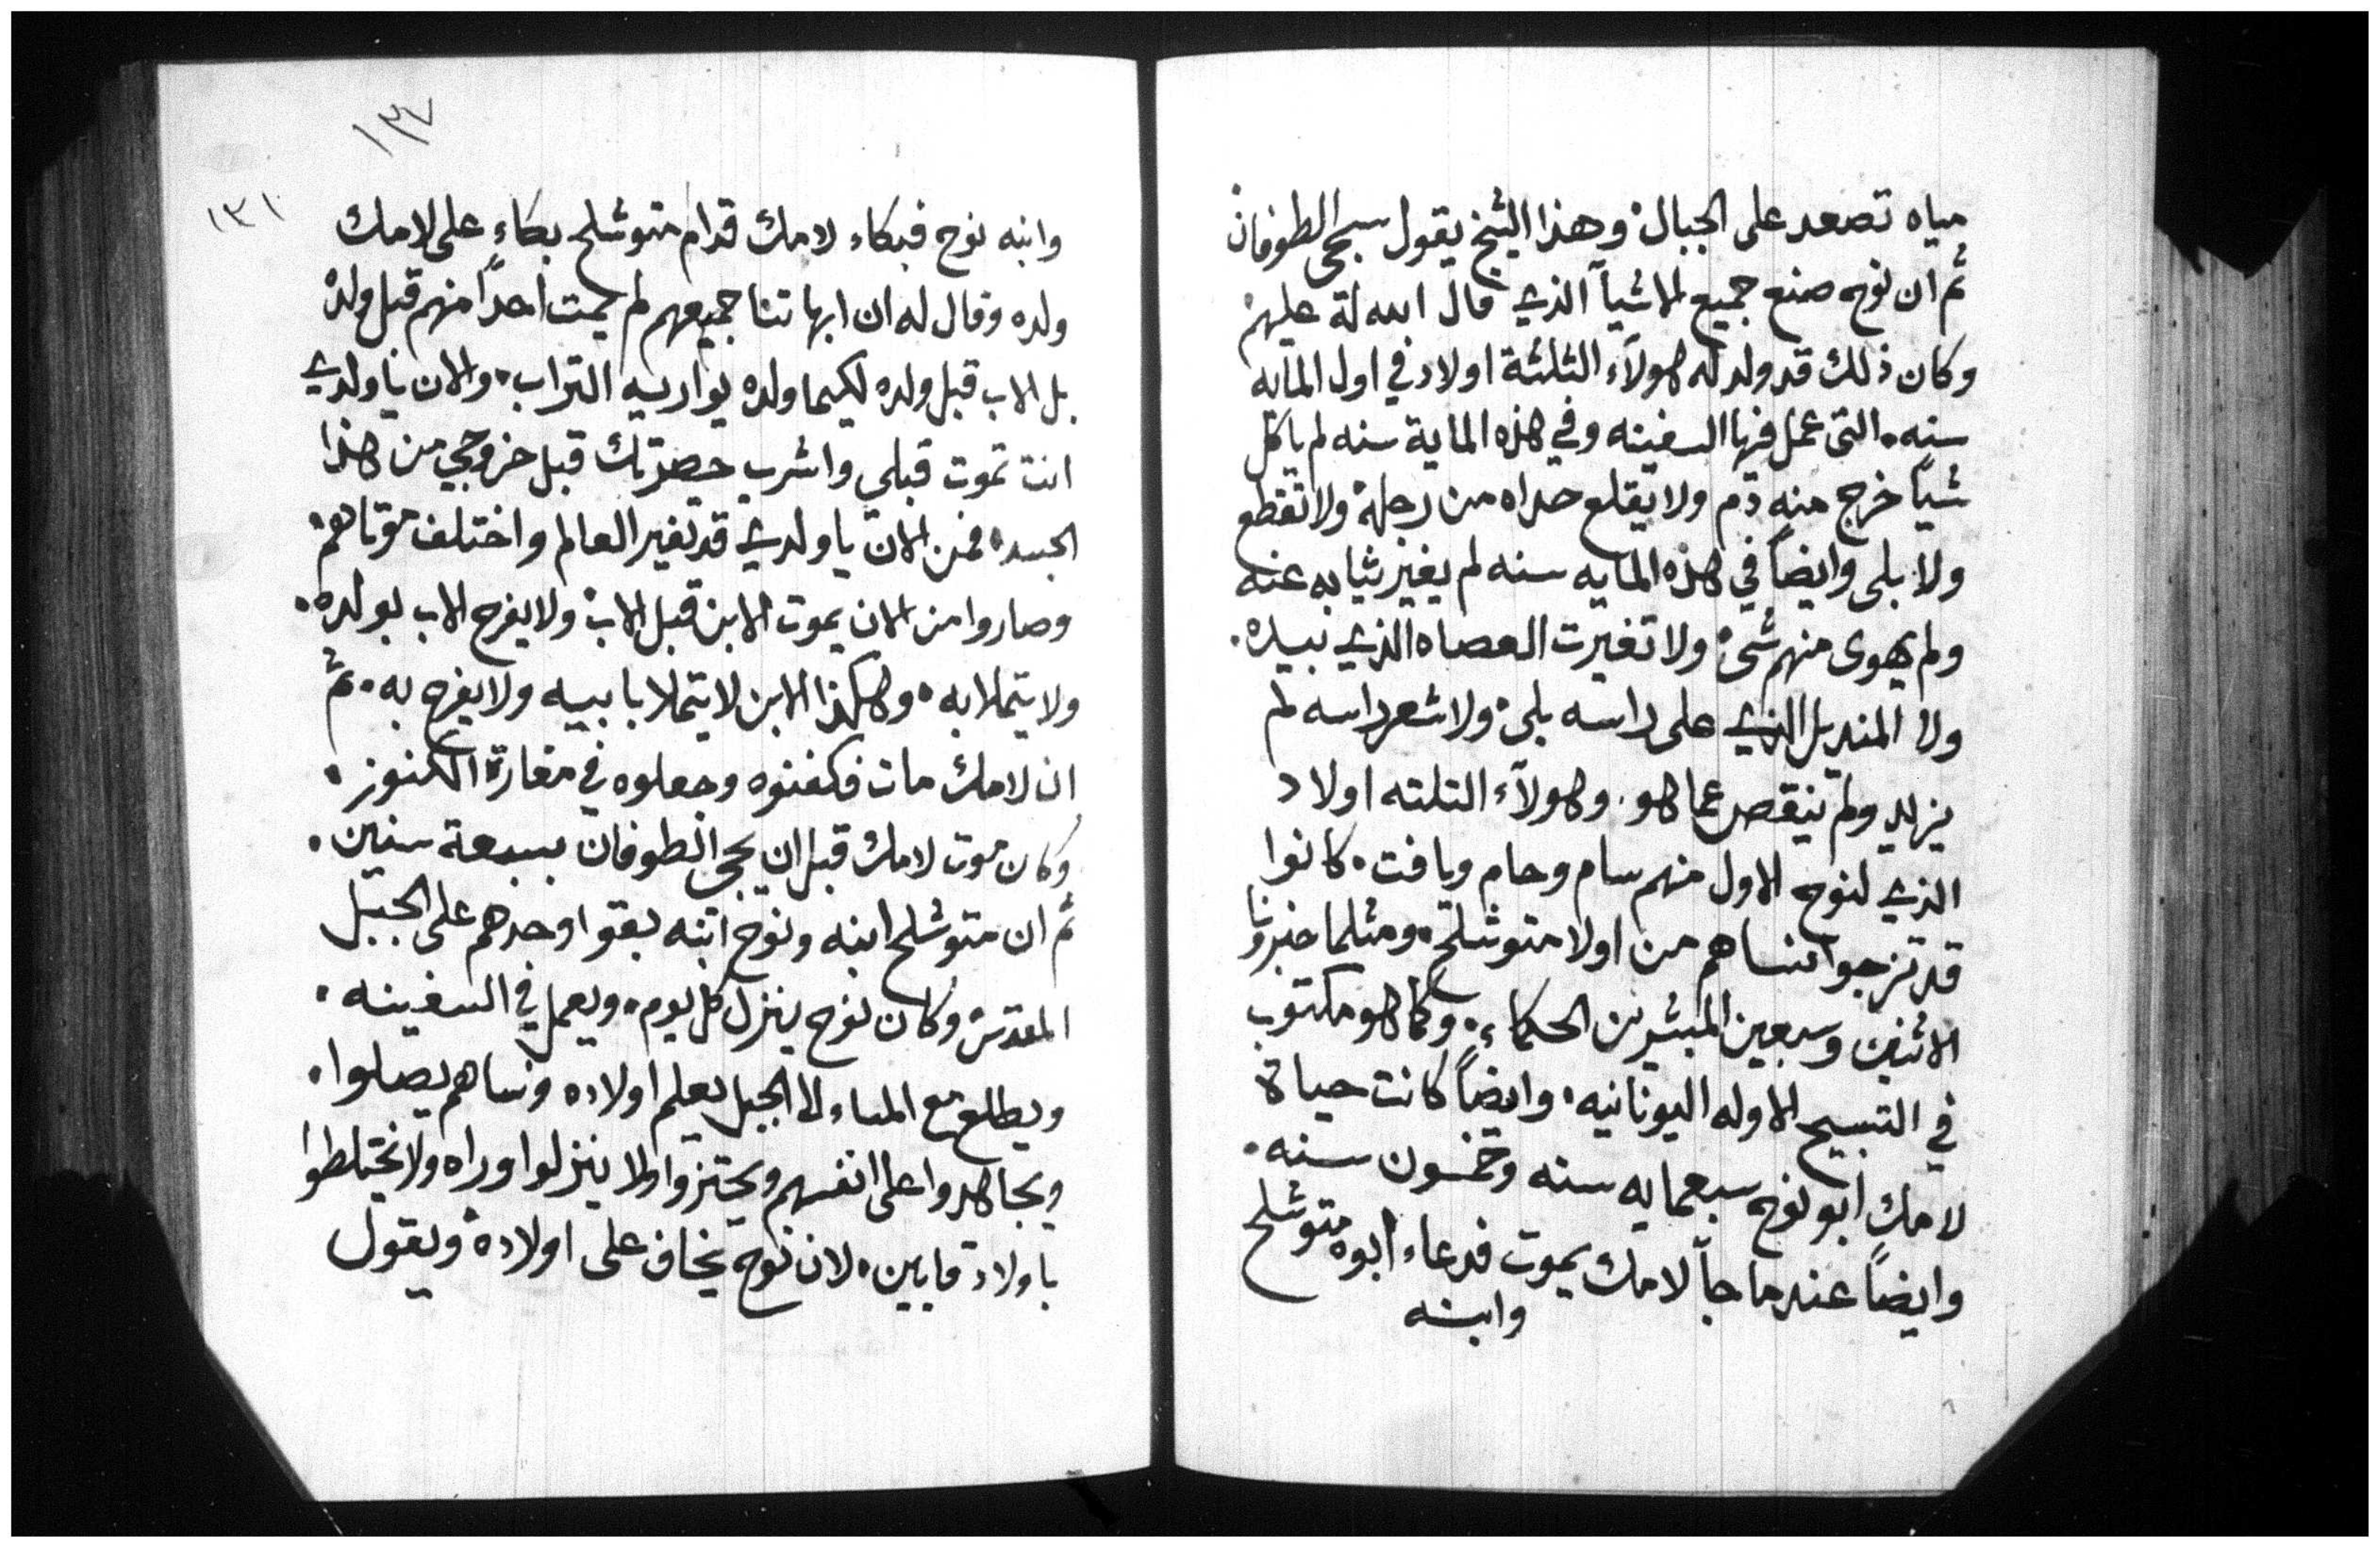 مياه تصعد على الجبال وهذا الشيخ يقول سيجى الطوفان
ثم ان نوح صنع جميع الاشيآ الذي قال الله لة عليهم
وكان ذلك قد ولد له هولآء الثلثة اولاد في اول المايه
سنه. التى عمل فيها السفينه وفي هذه الماية سنه لم ياكل
شياً خرج منه دم ولا يقلع حداه من رجلة ولا تقطع
ولا بلى وايضاً في هذه المايه سنه لم يغير ثيابه عنه
ولم يهوى منهم شئ ولا تغيرت العصاه الذي بيده.
ولا المنديل الذي على راسه بلى ولا شعر راسه لم
يزيد ولم ينقص عما هو. وهولآء التلته اولاد
الذي لنوح الاول منهم سام وحام ويافت. كانوا
قد تزجوا نساهم من اولا متوشلح. ومثلما خبرونا
الاثنين وسبعين المبشرين الحكماء. وكما هو مكتوب
في التسبيح الاوله اليونانيه. وايضاً كانت حياة
لامك ابو نوح سبعمايه سنه وخمسون سنه.
وايضاً عندما جآ لامك يموت فدعاء ابوه متوشلح
وابنه
١٣٧
١٣١
وابنه نوح فبكاء لامك قدام متوشلح بكاء على لامك
ولده وقال له ان ابهاتنا جميعهم لم يمت احداً منهم قبل ولده
بل الاب قبل ولده لكيما ولده يواريه التراب. والان يا ولدي
انت تموت قبلي واشرب حصرتك قبل خروجي من هذا
الجسد. فمن الان يا ولدي قد تغير العالم واختلف موتاهم
وصاروا من الان يموت الابن قبل الاب ولا يفرح الاب بولده.
ولا يتملا به. وهكذا الابن لا يتملا بابيه ولا يفرح به. ثم
ان لامك مات فكفنوه وجعلوه في مغارة الكنوز.
وكان موت لامك قبل ان يجى الطوفان بسبعة سنين.
ثم ان متوشلح ابنه ونوح ابنه بقوا وحدهم على الجبل
المقدس وكان نوح ينزل كل يوم. ويعمل في السفينه.
ويطلع مع المساء الى الجبل يعلم اولاده ونساهم يصلوا.
ويجاهدوا على انفسهم ويحتزوا الا ينزلوا وراه ولا يختلطوا
باولاد قايين. لان نوح يخاف على اولاده ويقول